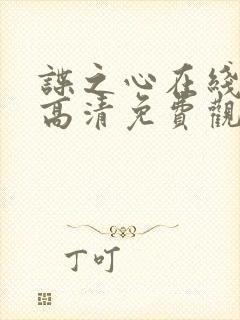 諜之心在綫
高清免費觀
丁叮